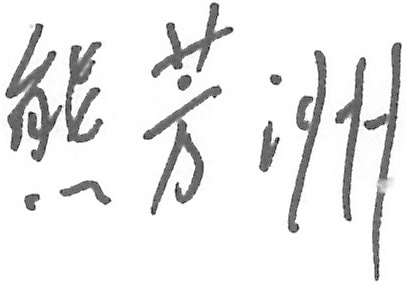 熊芳洲